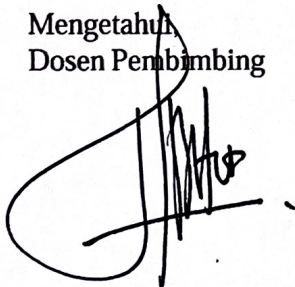 Mengetahui,
Dosen Pembimbing